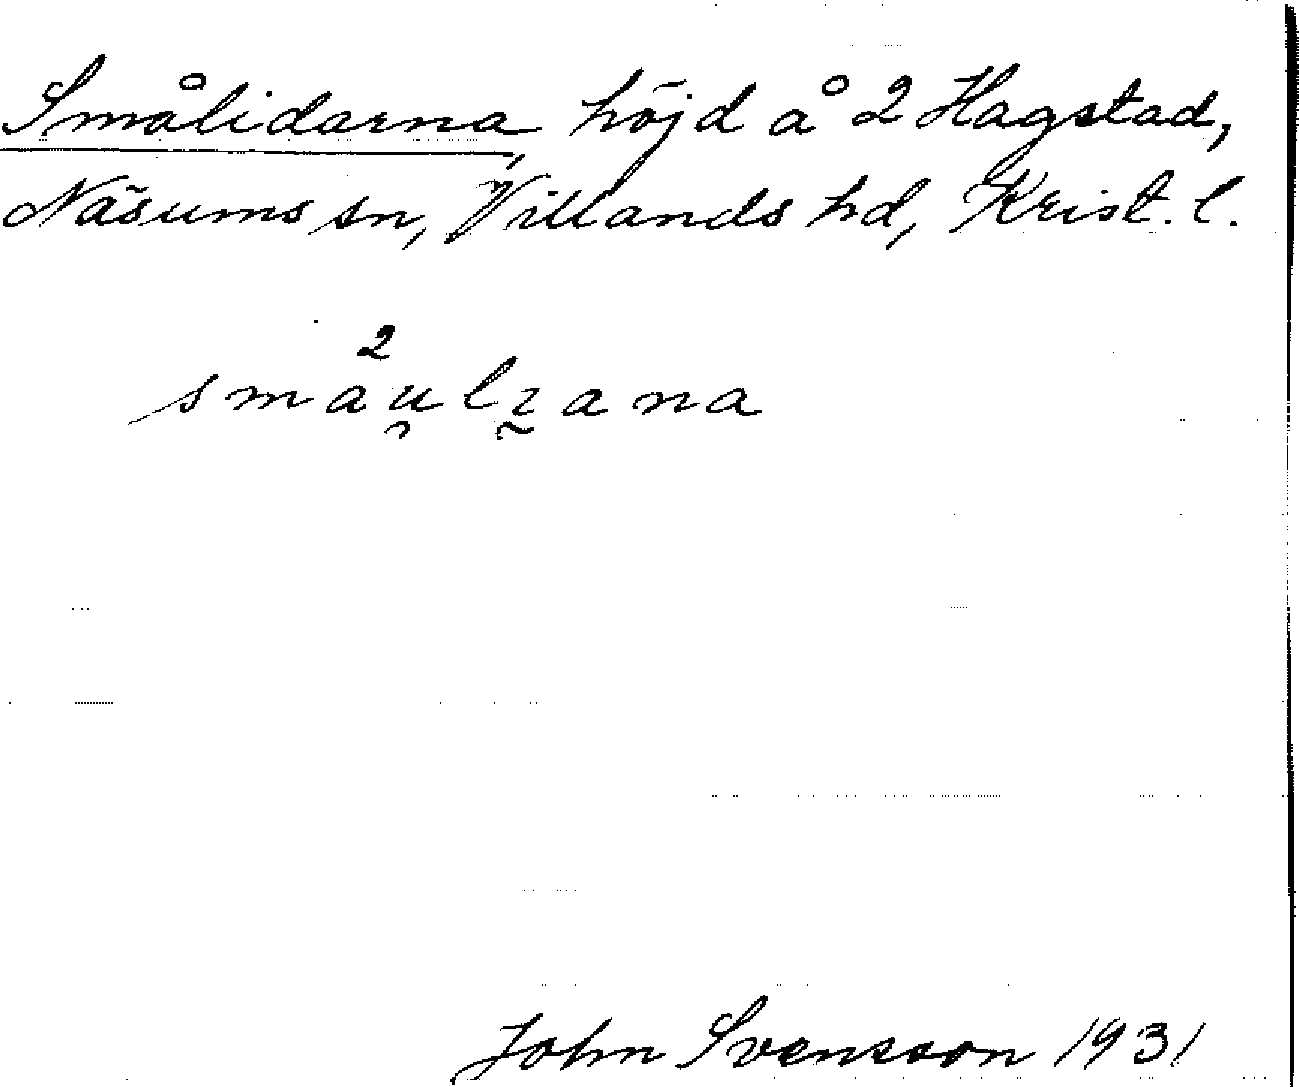 Smålidarna, höjd å 2 Hagstad,
Näsums sn, Villands hd, Krist. l.
John Svensson 1931